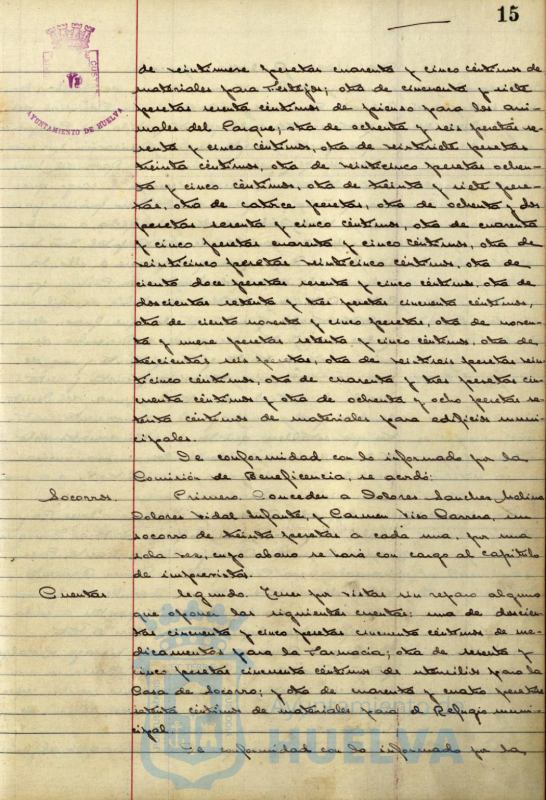 15
AYUNTAMIENTO DE HUELVA
de veintinueve pesetas cuarenta y cinco céntimos de
materiales para festejos; otra de cincuenta y siete
pesetas sesenta céntimos de pienso para los ani-
males del Parque; otra de ochenta y seis pesetas se-
senta y cinco céntimos, otra de veintisiete pesetas
treinta céntimos, otra de veinticinco pesetas ochen-
ta y cinco céntimos, otra de treinta y siete pese-
tas, otra de catorce pesetas, otra de ochenta y dos
pesetas sesenta y cinco céntimos, otra de cuarenta
y cinco pesetas cuarenta y cinco céntimos, otra de
veinticinco pesetas veinticinco céntimos, otra de
ciento doce pesetas sesenta y cinco céntimos, otra de
doscientas setenta y tres pesetas cincuenta céntimos,
otra de ciento noventa y cinco pesetas, otra de noven-
ta y nueve pesetas setenta y cinco céntimos, otra de
trescientas seis pesetas, otra de veintiseis pesetas vein-
ticinco céntimos, otra de cuarenta y tres pesetas cin-
cuenta céntimos y otra de ochenta y ocho pesetas se-
tenta céntimos de materiales para edificios muni-
cipales.
De conformidad con lo informado por la
Comisión de Beneficencia, se acordó:
Socorros. Primero. Conceder a Dolores Sanchez Molina
Dolores Vidal Infante, y Carmen Viso Carrera, un
socorro de treinta pesetas a cada una, por una
sola vez, cuyo abono se hará con cargo al capítulo
de imprevistos.
Cuentas Segundo. Tener por vistas sin reparo alguno
que oponer las siguientes cuentas: una de doscien-
tas cincuenta y cinco pesetas cincuenta céntimos de me-
dicamentos para la Farmacia; otra de sesenta y
cinco pesetas cincuenta céntimos de utensilios para la
Casa de Socorro; y otra de cuarenta y cuatro pesetas
céntimos de materiales para el Refugio muni-
cipal.
De conformidad con lo informado por la
Ayuntamiento de
HUELVA